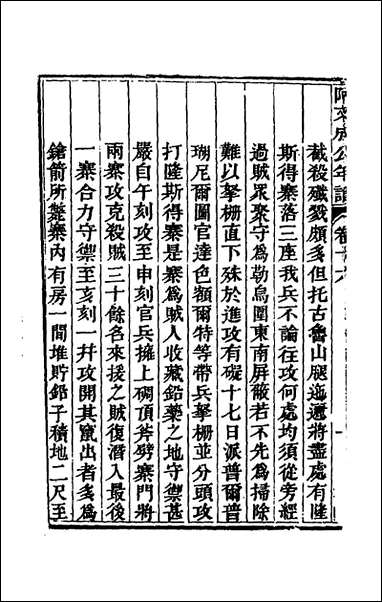 阿文成公年譜 卷十六
截殺殲戮頗多但托古魯山腿迤邐將盡處有隆
斯得寨落三座我兵不論往攻何處均須從旁經
過賊眾聚守爲勒烏圍東南屏蔽若不先爲掃除
難以拏柵直下殊於進攻有礙十七日派普爾普
瑚尼爾圖官達色額爾特等帶兵拏柵並分頭攻
打隆斯得寨是寨爲賊人收藏鉛藥之地守禦甚
嚴自午刻攻至申刻官兵擁上碉頂斧劈寨門將
兩寨攻克殺賊三十餘名來援之賊復潛入最後
一寨合力守禦至亥刻一幷攻開其竄出者多爲
鎗箭所斃寨內有房一間堆貯鉛子積地二尺至